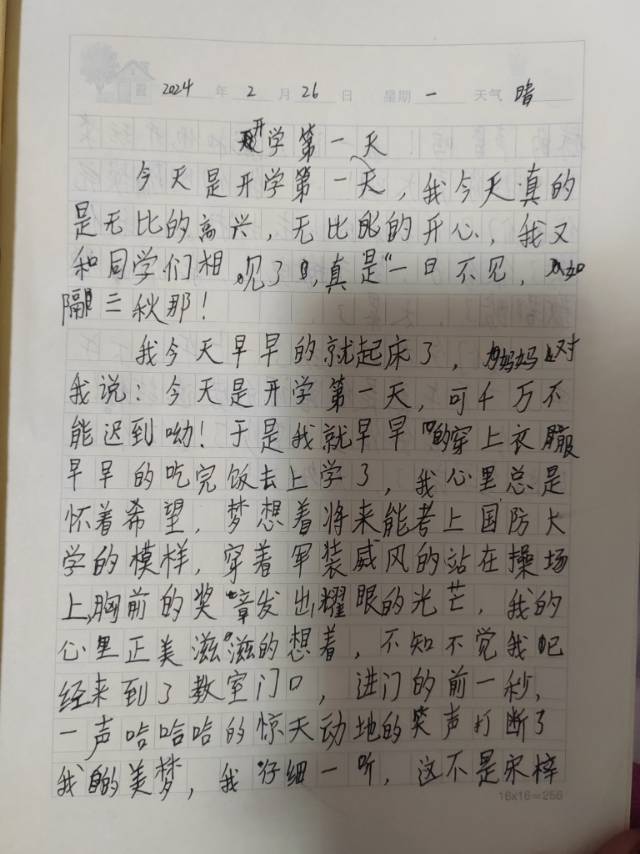 2024年2月26日 星期一 天气晴
开学第一天
今天是开学第一天，我今天真的
是无比的高兴，无比的开心，我又
和同学们相见了，真是“一日不见，如
隔三秋那！
我今天早早的就起床了，妈妈对
我说：今天是开学第一天，可千万不
能迟到呦！于是我就早早的穿上衣服
早早的吃完饭去上学了，我心里总是
怀着希望，梦想着将来能考上国防大
学的模样，穿着军装威风的站在操场
上，胸前的奖章发出耀眼的光芒，我的
心里正美滋滋的想着，不知不觉我已
经来到了教室门口，进门的前一秒，
一声哈哈哈的惊天动地的笑声打断了
我的美梦，我仔细一听，这不是宋梓
16x16=256